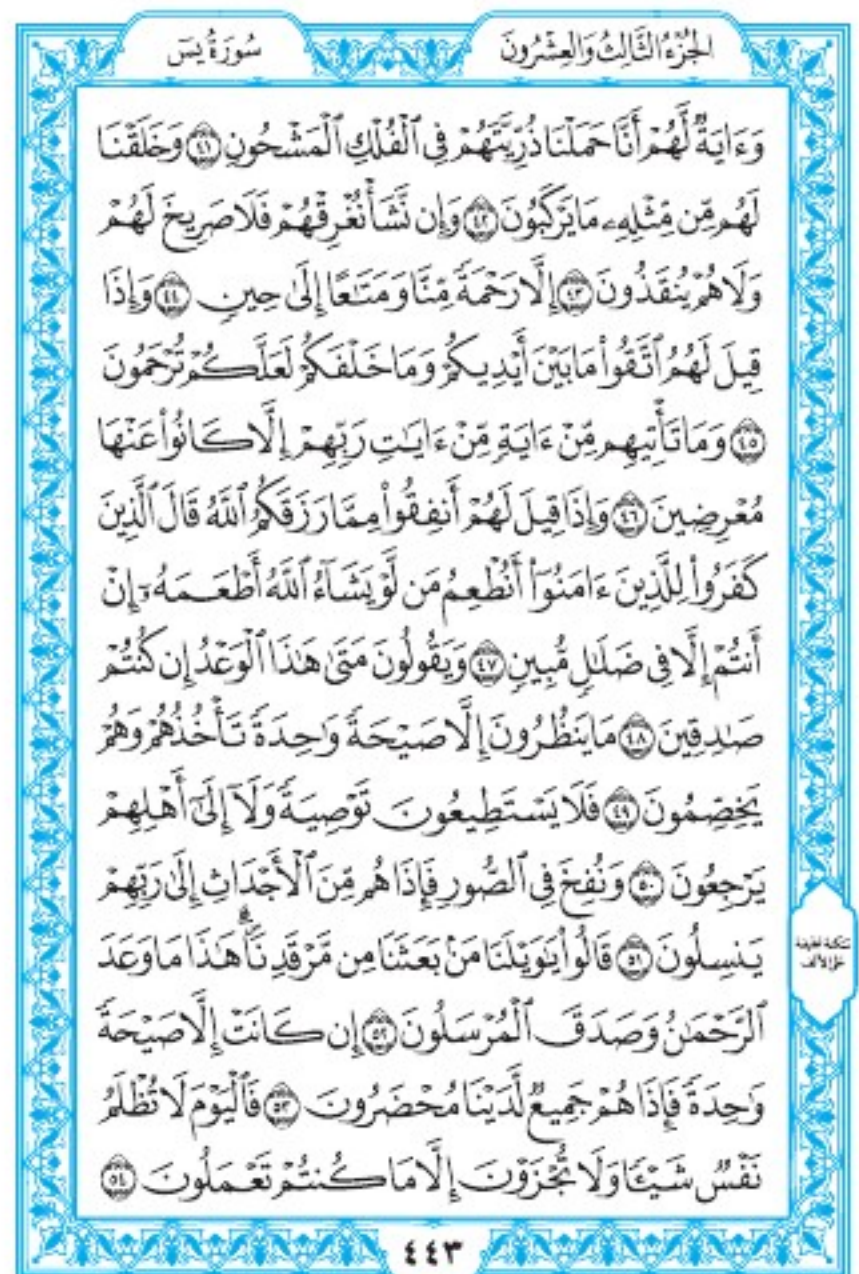 الجُزْءُ الثَّالِثُ وَالعِشْرُونَ
سُورَةُ يسٓ
وَءَايَةٞ لَّهُمۡ أَنَّا حَمَلۡنَا ذُرِّيَّتَهُمۡ فِي ٱلۡفُلۡكِ ٱلۡمَشۡحُونِ ٤١ وَخَلَقۡنَا
لَهُم مِّن مِّثۡلِهِۦ مَا يَرۡكَبُونَ ٤٢ وَإِن نَّشَأۡ نُغۡرِقۡهُمۡ فَلَا صَرِيخَ لَهُمۡ
وَلَا هُمۡ يُنقَذُونَ ٤٣ إِلَّا رَحۡمَةٗ مِّنَّا وَمَتَٰعًا إِلَىٰ حِينٖ ٤٤ وَإِذَا
قِيلَ لَهُمُ ٱتَّقُواْ مَا بَيۡنَ أَيۡدِيكُمۡ وَمَا خَلۡفَكُمۡ لَعَلَّكُمۡ تُرۡحَمُونَ
٤٥ وَمَا تَأۡتِيهِم مِّنۡ ءَايَةٖ مِّنۡ ءَايَٰتِ رَبِّهِمۡ إِلَّا كَانُواْ عَنۡهَا
مُعۡرِضِينَ ٤٦ وَإِذَا قِيلَ لَهُمۡ أَنفِقُواْ مِمَّا رَزَقَكُمُ ٱللَّهُ قَالَ ٱلَّذِينَ
كَفَرُواْ لِلَّذِينَ ءَامَنُوٓاْ أَنُطۡعِمُ مَن لَّوۡ يَشَآءُ ٱللَّهُ أَطۡعَمَهُۥٓ إِنۡ
أَنتُمۡ إِلَّا فِي ضَلَٰلٖ مُّبِينٖ ٤٧ وَيَقُولُونَ مَتَىٰ هَٰذَا ٱلۡوَعۡدُ إِن كُنتُمۡ
صَٰدِقِينَ ٤٨ مَا يَنظُرُونَ إِلَّا صَيۡحَةٗ وَٰحِدَةٗ تَأۡخُذُهُمۡ وَهُمۡ
يَخِصِّمُونَ ٤٩ فَلَا يَسۡتَطِيعُونَ تَوۡصِيَةٗ وَلَآ إِلَىٰٓ أَهۡلِهِمۡ
يَرۡجِعُونَ ٥٠ وَنُفِخَ فِي ٱلصُّورِ فَإِذَا هُم مِّنَ ٱلۡأَجۡدَاثِ إِلَىٰ رَبِّهِمۡ
يَنسِلُونَ ٥١ قَالُواْ يَٰوَيۡلَنَا مَنۢ بَعَثَنَا مِن مَّرۡقَدِنَاۜۗ هَٰذَا مَا وَعَدَ
ٱلرَّحۡمَٰنُ وَصَدَقَ ٱلۡمُرۡسَلُونَ ٥٢ إِن كَانَتۡ إِلَّا صَيۡحَةٗ
وَٰحِدَةٗ فَإِذَا هُمۡ جَمِيعٞ لَّدَيۡنَا مُحۡضَرُونَ ٥٣ فَٱلۡيَوۡمَ لَا تُظۡلَمُ
نَفۡسٞ شَيۡـٔٗا وَلَا تُجۡزَوۡنَ إِلَّا مَا كُنتُمۡ تَعۡمَلُونَ ٥٤
سكتة لطيفة
على الألف
٤٤٣